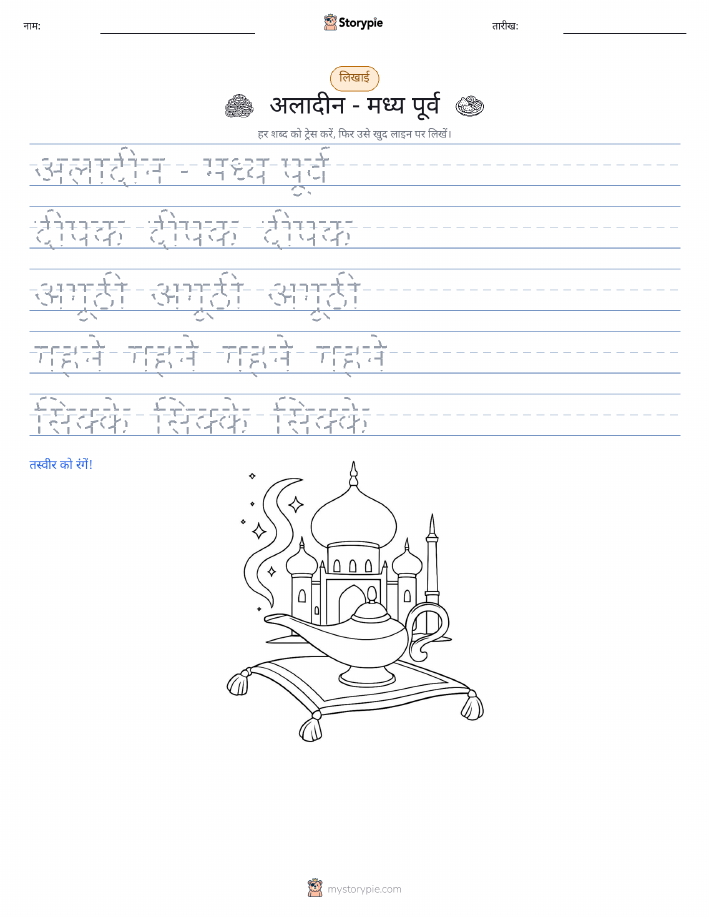 नाम:
Storypie
तारीख:
लिखाई
अलादीन - मध्य पूर्व
हर शब्द को ट्रेस करें, फिर उसे खुद लाइन पर लिखें।
अलादीन - मध्य पूर्व
दीपक दीपक दीपक
अगूठी अगूठी अगूठी
गहने गहने गहने गहने
सिक्के सिक्के सिक्के
तस्वीर को रंगें!
mystorypie.com